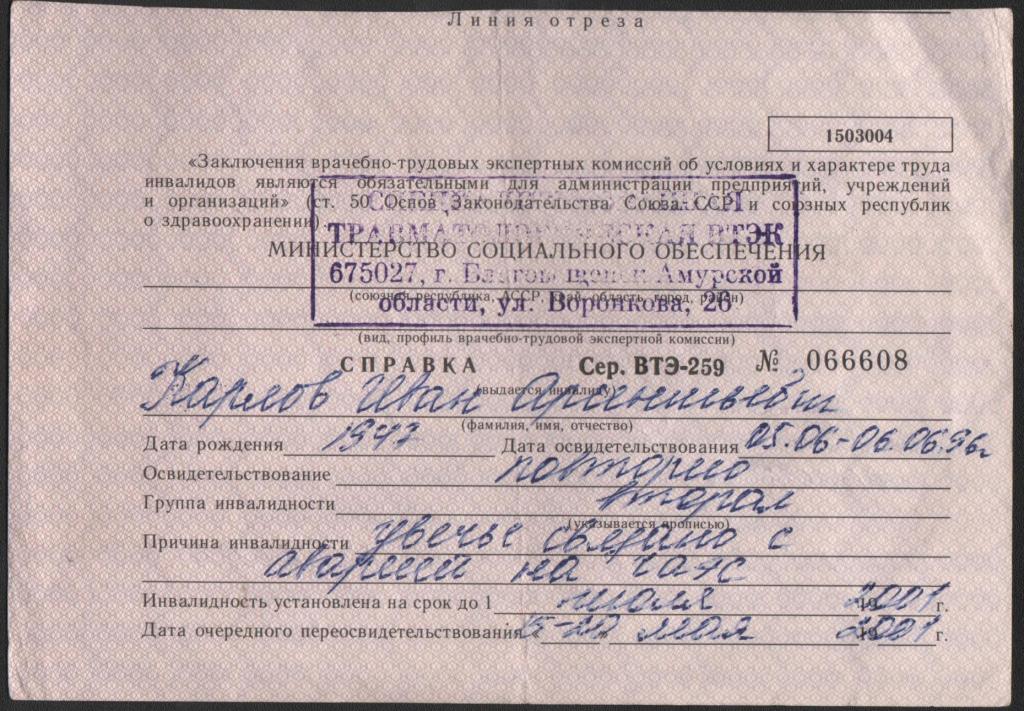 Линия отреза
1503004
«Заключения врачебно-трудовых экспертных комиссий об условиях и характере труда
инвалидов являются обязательными для администрации предприятий, учреждений
и организаций» (ст. 50 Основ Законодательства Союза ССР и союзных республик
о здравоохранении).
ТРАВМАТОЛОГИЧЕСКАЯ ВТЭК
МИНИСТЕРСТВО СОЦИАЛЬНОГО ОБЕСПЕЧЕНИЯ
675027, г. Благовещенск Амурской
(союзная республика, АССР, край, область, город, район)
области, ул. Воронкова, 26
(вид, профиль врачебно-трудовой экспертной комиссии)
СПРАВКА Сер. ВТЭ-259 № 066608
(выдается инвалиду)
Карлов Иван Арсентьевич
(фамилия, имя, отчество)
Дата рождения 1947 Дата освидетельствования 05.06-06.06.96г
Освидетельствование повторно
Группа инвалидности вторая
(указывается прописью)
Причина инвалидности увечье связано с
аварией на ЧАЭС
Инвалидность установлена на срок до 1 июля 2001 г.
Дата очередного переосвидетельствования «15-20» мая 2001 г.